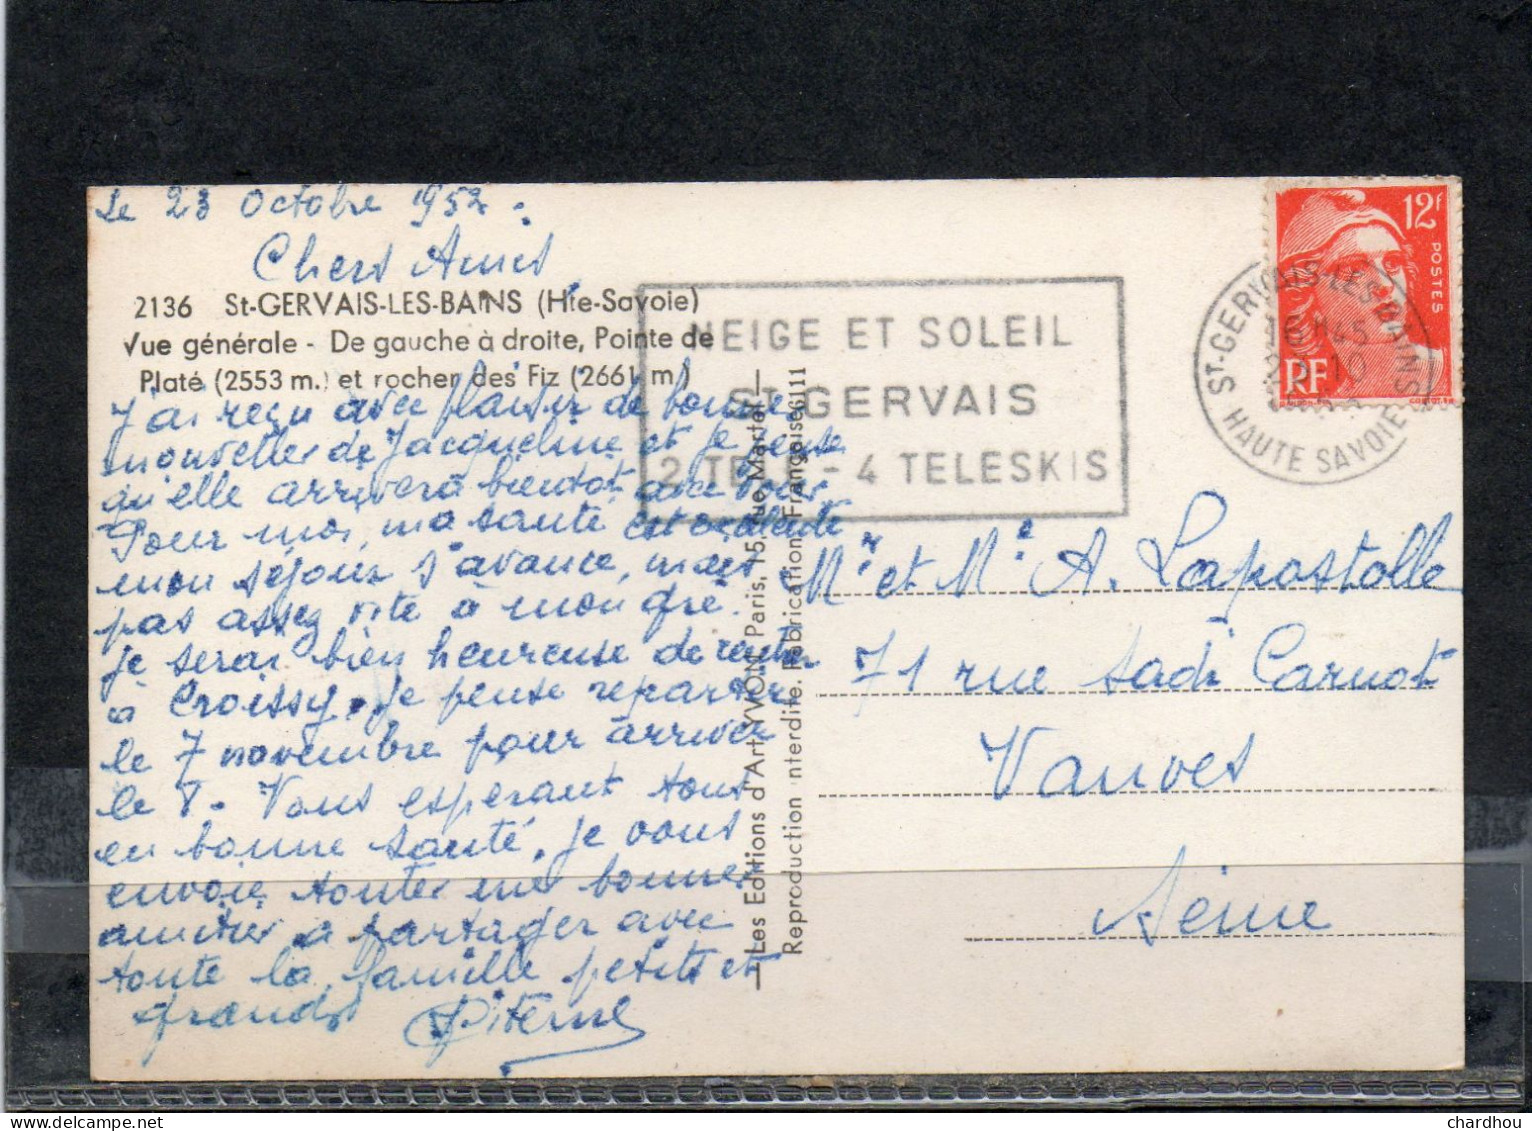 Le 23 Octobre 1952.
Chers Amis
2136 St-GERVAIS-LES-BAINS (Hte-Savoie)
Vue générale - De gauche à droite, Pointe de
Platé (2553 m.) et rocher des Fiz (2661 m.)
J'ai reçu avec plaisir de bonnes
nouvelles de Jacqueline et je pense
qu'elle arrivera bientôt avec vous
Pour moi, ma santé est excellente
mon séjour s'avance, mais
pas assez vite à mon gré.
je serai bien heureuse de rentrer
à Croissy. je pense repartir
le 7 novembre pour arriver
le 8. Vous espérant tous
en bonne santé, je vous
envoie toutes mes bonnes
amitiés à partager avec
toute la famille petits et
grands
Les Editions d'Art YVON, Paris, 15, rue Martel
Reproduction interdite. Fabrication Française 6111
NEIGE ET SOLEIL
ST GERVAIS
2 TELE - 4 TELESKIS
ST-GERVAIS-LES-BAINS
16 H 45
10
HAUTE SAVOIE
12F
POSTES
RF
Mr et Me A. Lapostolle
71 rue Sadi Carnot
Vanves
Seine
chardhou